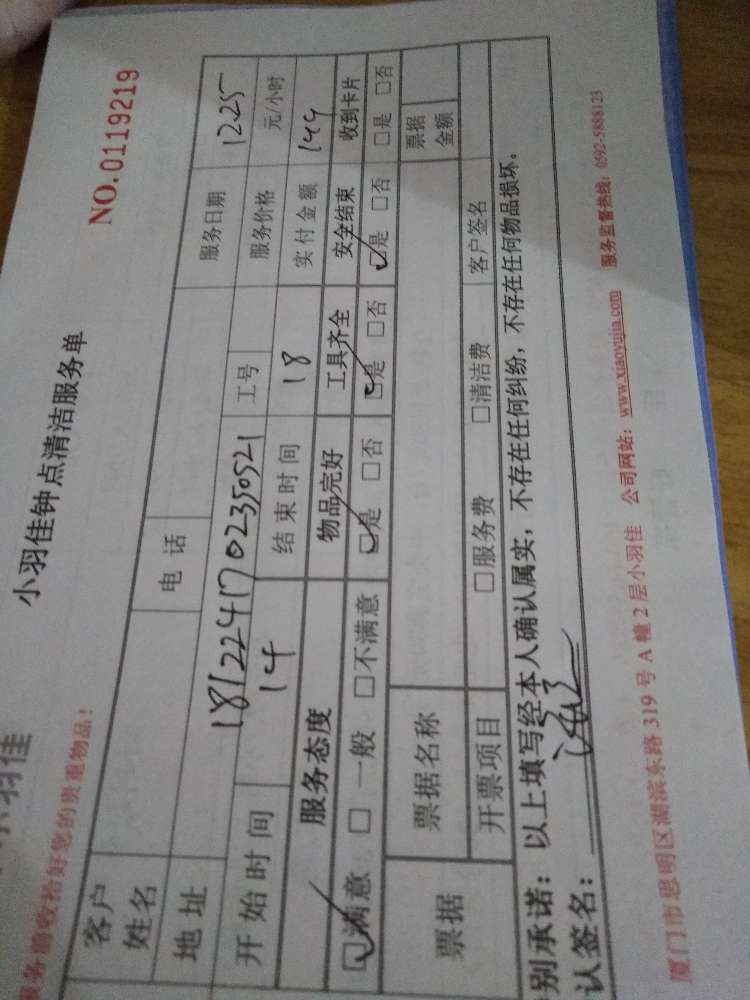 小羽佳钟点清洁服务单
NO.0119219
服务前收拾好您的贵重物品！
客户姓名 电话 服务日期 1225
地址 181224170230521 工号 服务价格 元/小时
开始时间 14 结束时间 18 实付金额 144
服务态度 物品完好 工具齐全 安全结束 收到卡片
☑满意 □一般 □不满意 ☑是 □否 ☑是 □否 ☑是 □否 □是 □否
票据 票据名称 票据金额
开票项目 □服务费 □清洁费 客户签名
别承诺：以上填写经本人确认属实，不存在任何纠纷，不存在任何物品损坏。
认签名：
厦门市思明区湖滨东路319号A幢2层小羽佳 公司网站：www.xiaoyujia.com 服务监督热线：0592-5888123